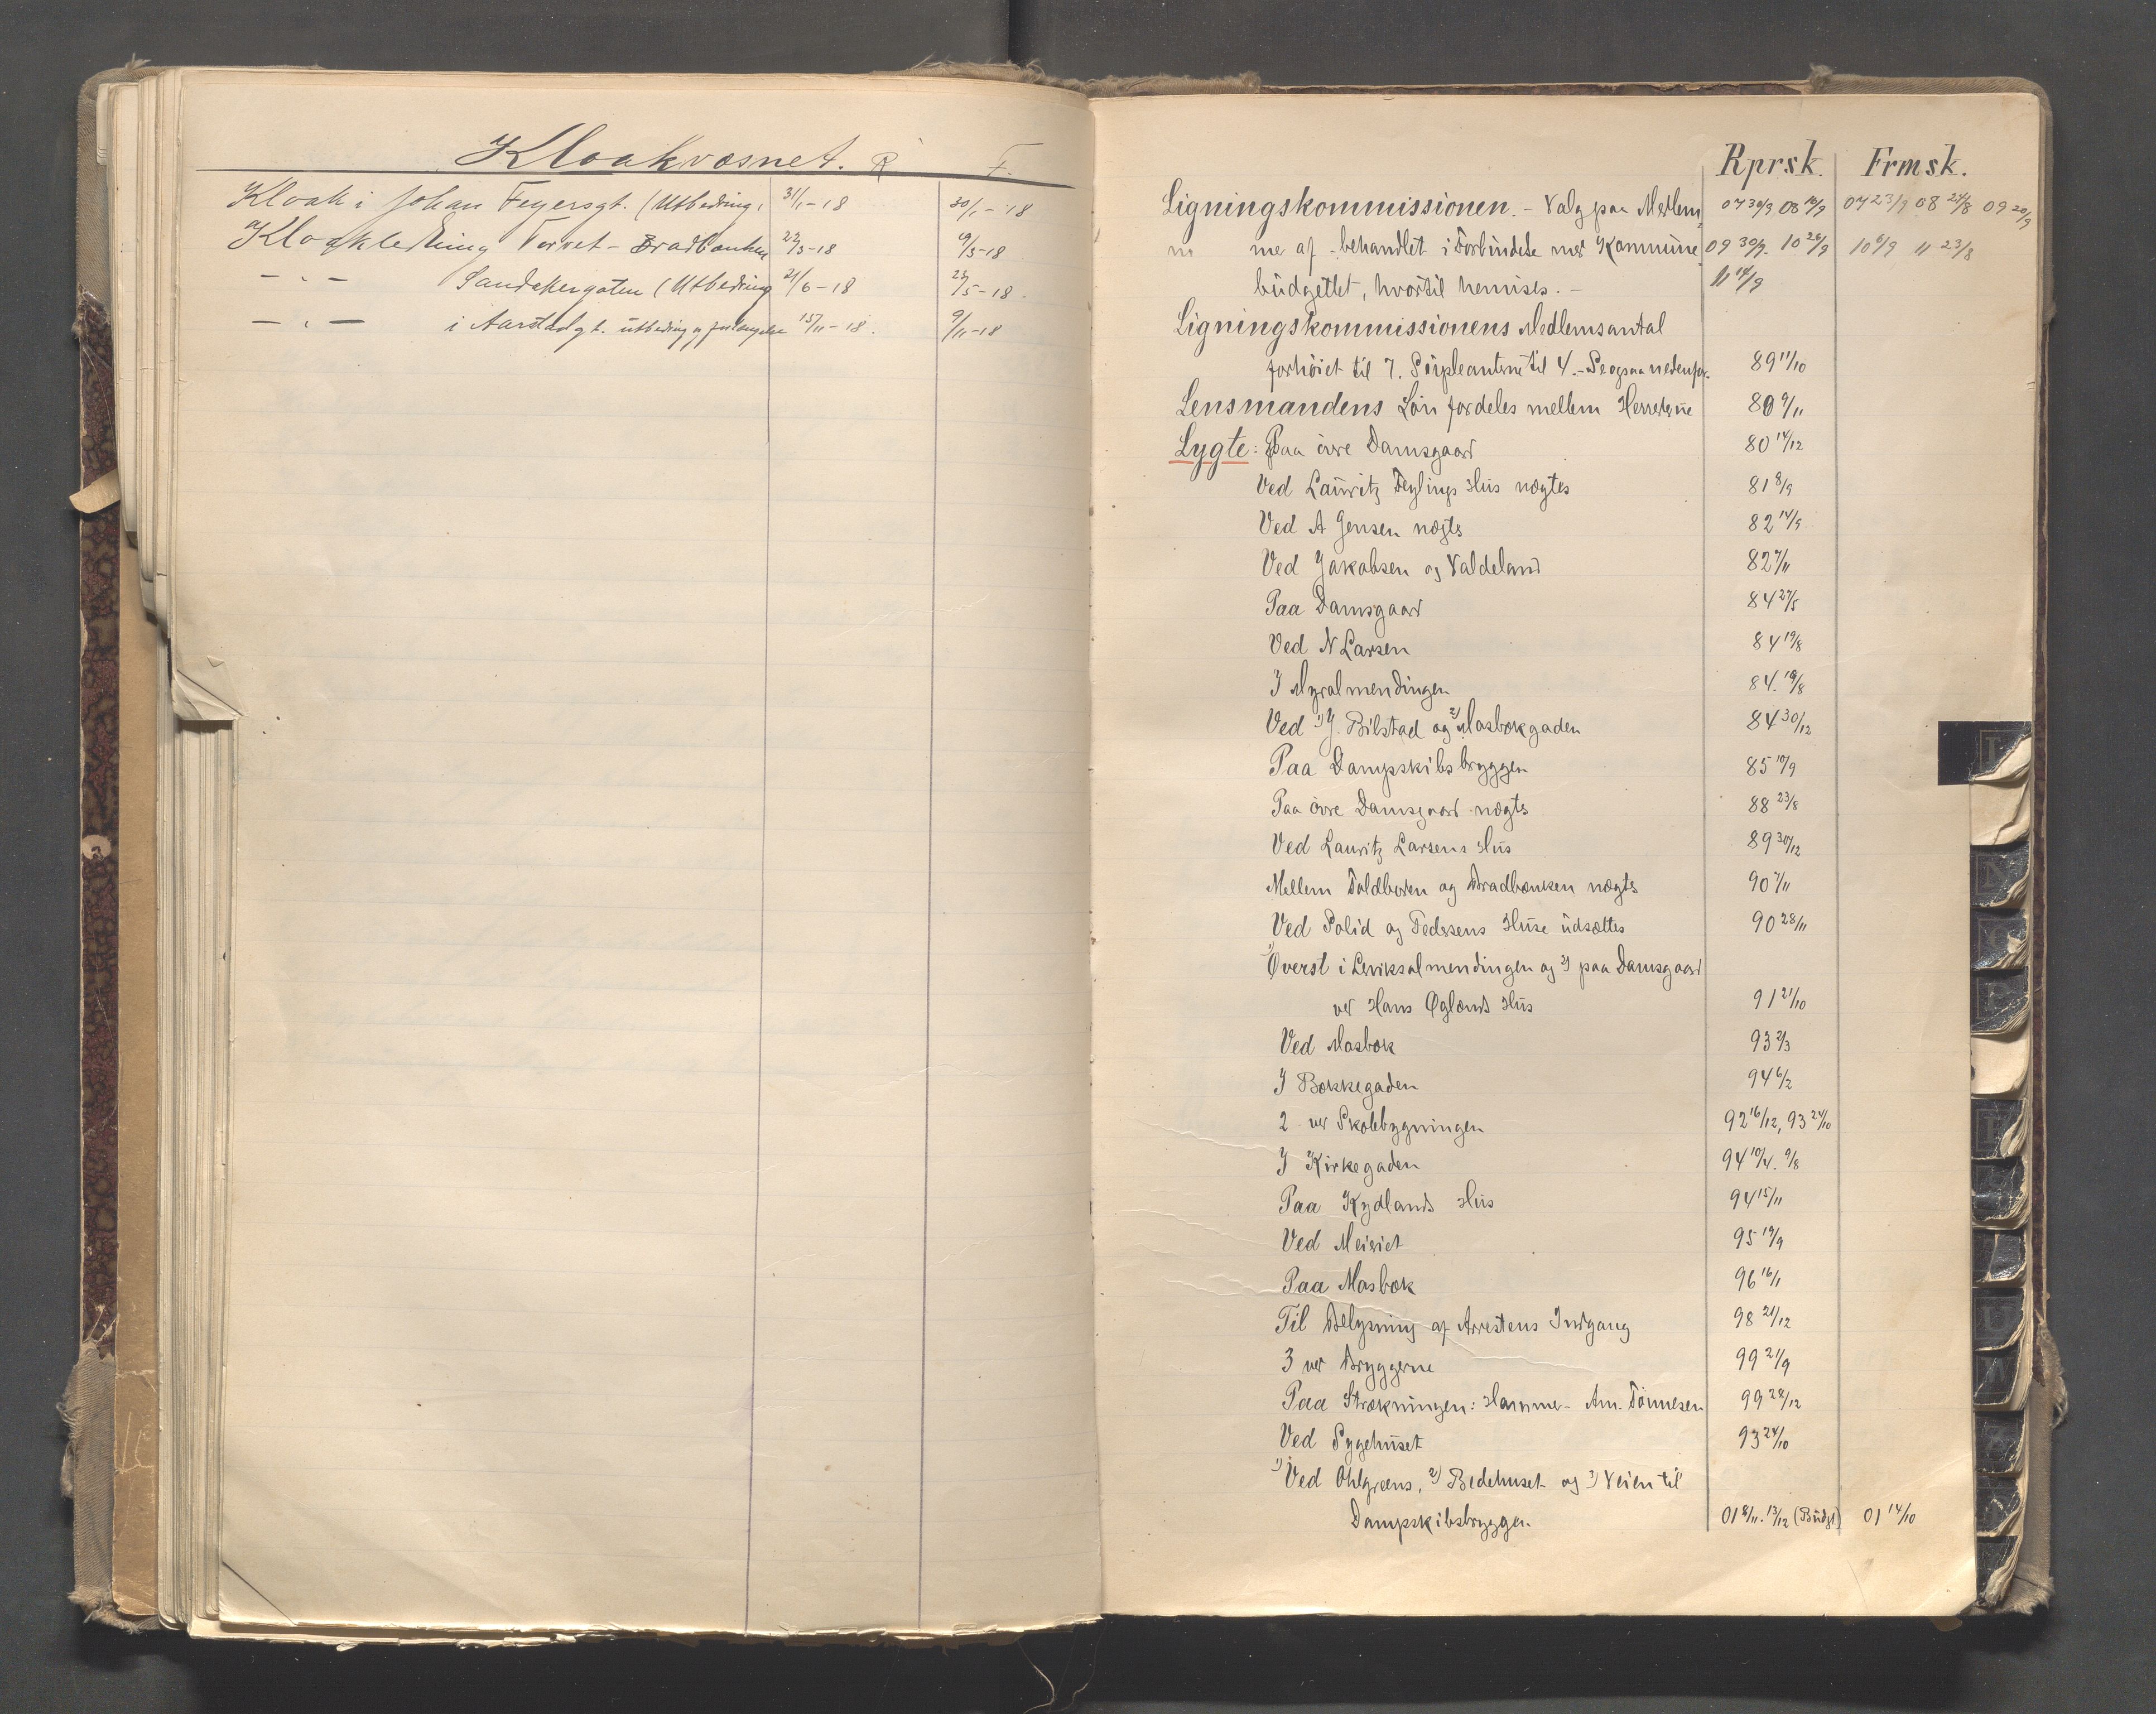 Kloakvæsnet. R F.
Kloak i Johan Feyersgt. (Utbedring 31/1-18 30/1-18
Kloakledning Torvet - Bradbænken 22/3-18 19/3-18
— " — Sandakergaten (Utbedring 21/6-18 23/5-18.
— " — i Aarstadgt. utbedring og forlængelse 15/11-18. 9/11-18
Rprsk. Frmsk.
Ligningskommissionen. - Valg paa Medlem 07 30/9 08 16/9 07 23/9 08 24/8 09 20/9
" me af - behandlet i Forbindelse med Kommune 09 30/9. 10 26/9 10 6/9 11 23/8
budgettet, hvortil henvises. - 11 14/9
Ligningskommissionens Medlemsantal
forhöiet til 7. Suppleanterne til 4. - Se ogsaa nedenfor. 89 11/10
Lensmandens Lön fordeles mellem Herrederne 80 9/11
Lygte: Paa övre Damsgaard 80 14/12
Ved Lauritz Feylings Hus nægtes 81 8/9
Ved A Jensen nægtes 82 14/9
Ved Jakobsen og Valdeland 82 7/11
Paa Damsgaard 84 27/5
Ved N Larsen 84 19/8
I Myralmendingen 84. 19/8
Ved 1) J. Bilstad og 2) Mosbækgaden 84 30/12
Paa Dampskibsbryggen 85 10/9
Paa övre Damsgaard nægtes 88 23/8
Ved Lauritz Larsens Hus 89 30/12
Mellem Toldboden og Bradbænken nægtes 90 7/11
Ved Polid og Pedersens Huse udsættes 90 28/11
1) Øverst i Lerviksalmendingen og 2) paa Damsgaard
ved Hans Øglænds Hus 91 21/10
Ved Mosbæk 93 2/3
I Bækkegaden 94 6/2
2 ved Skolebygningen 92 16/12, 93 24/10
I Kirkegaden 94 10/4. 9/8
Paa Kydlands Hus 94 15/11
Ved Meieriet 95 19/9
Paa Mosbæk 96 16/1
Til Belysning af Arrestens Indgang 98 21/12
3 ved Bryggerne 99 21/9
Paa Strækningen: Hammer - Am. Tönnesen 99 28/12
Ved Sygehuset 93 24/10
1) Ved Ohlgreens, 2) Bedehuset og 3) Veien til
Dampskibsbryggen. 01 8/11. 13/12 (Budgt) 01 14/10